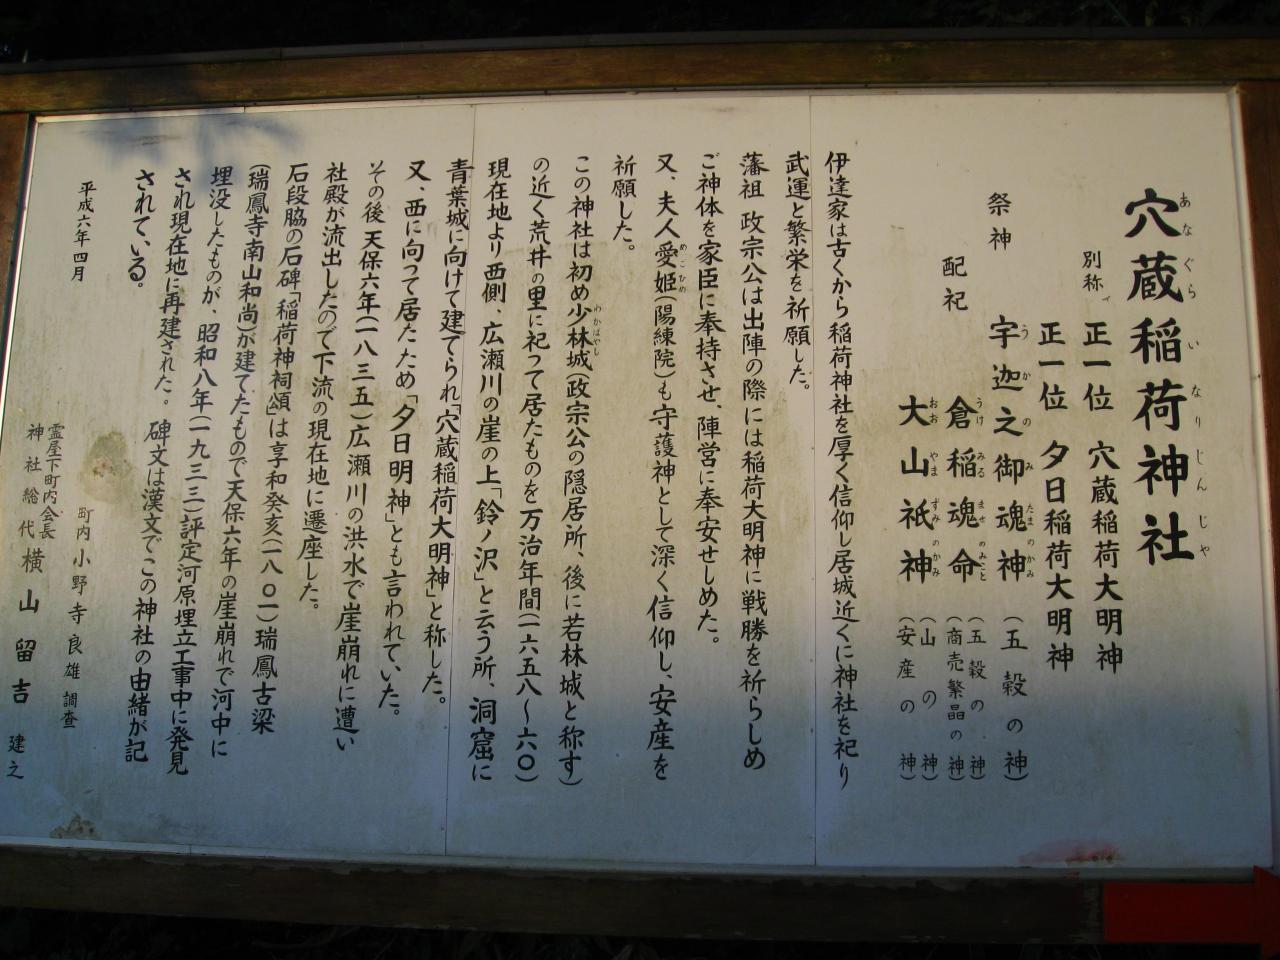 穴蔵稲荷神社
あなぐらいなりじんじゃ
別称 正一位 穴蔵稲荷大明神
正一位 夕日稲荷大明神
祭神 宇迦之御魂神(五穀の神)
うかのみたまのかみ
配祀 倉稲魂命(五穀の神)(商売繁晶の神)
うけみるませのみこと
大山祇神(山の神)(安産の神)
おおやまずみのかみ
伊達家は古くから稲荷神社を厚く信仰し居城近くに神社を祀り
武運と繁栄を祈願した。
藩祖 政宗公は出陣の際には稲荷大明神に戦勝を祈らしめ
ご神体を家臣に奉持させ、陣営に奉安せしめた。
又、夫人愛姫(陽練院)も守護神として深く信仰し、安産を
めごひめ
祈願した。
この神社は初め少林城(政宗公の隠居所、後に若林城と称す)
わかばやし
の近く荒井の里に祀って居たものを万治年間(一六五八〜六〇)
現在地より西側、広瀬川の崖の上「鈴ノ沢」と云う所、洞窟に
青葉城に向けて建てられ「穴蔵稲荷大明神」と称した。
又、西に向って居たため「夕日明神」とも言われていた。
その後 天保六年(一八三五)広瀬川の洪水で崖崩れに遭い
社殿が流出したので下流の現在地に遷座した。
石段脇の石碑「稲荷神祠頌」は享和癸亥(一八〇一)瑞鳳古梁
(瑞鳳寺南山和尚)が建てたもので天保六年の崖崩れで河中に
埋没したものが、昭和八年(一九三三)評定河原埋立工事中に発見
され現在地に再建された。碑文は漢文でこの神社の由緒が記
されている。
平成六年四月
町内 小野寺良雄 調査
霊屋下町内会長
神社総代 横山留吉 建之